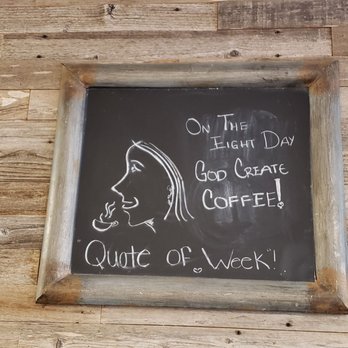 ON THE
EIGHT DAY
GOD CREATE
COFFIE!
Quote of Week"!